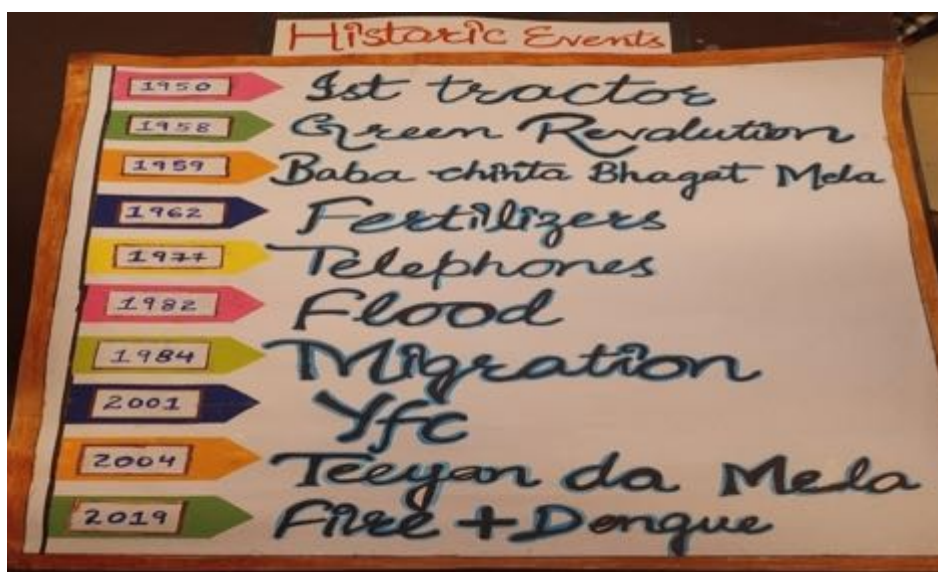 Historic Events
1950 1st tractor
1958 Green Revolution
1959 Baba chinta Bhagat Mela
1962 Fertilizers
1977 Telephones
1982 Flood
1984 Migration
2001 Yfc
2004 Teeyan da Mela
2019 Fire + Dengue